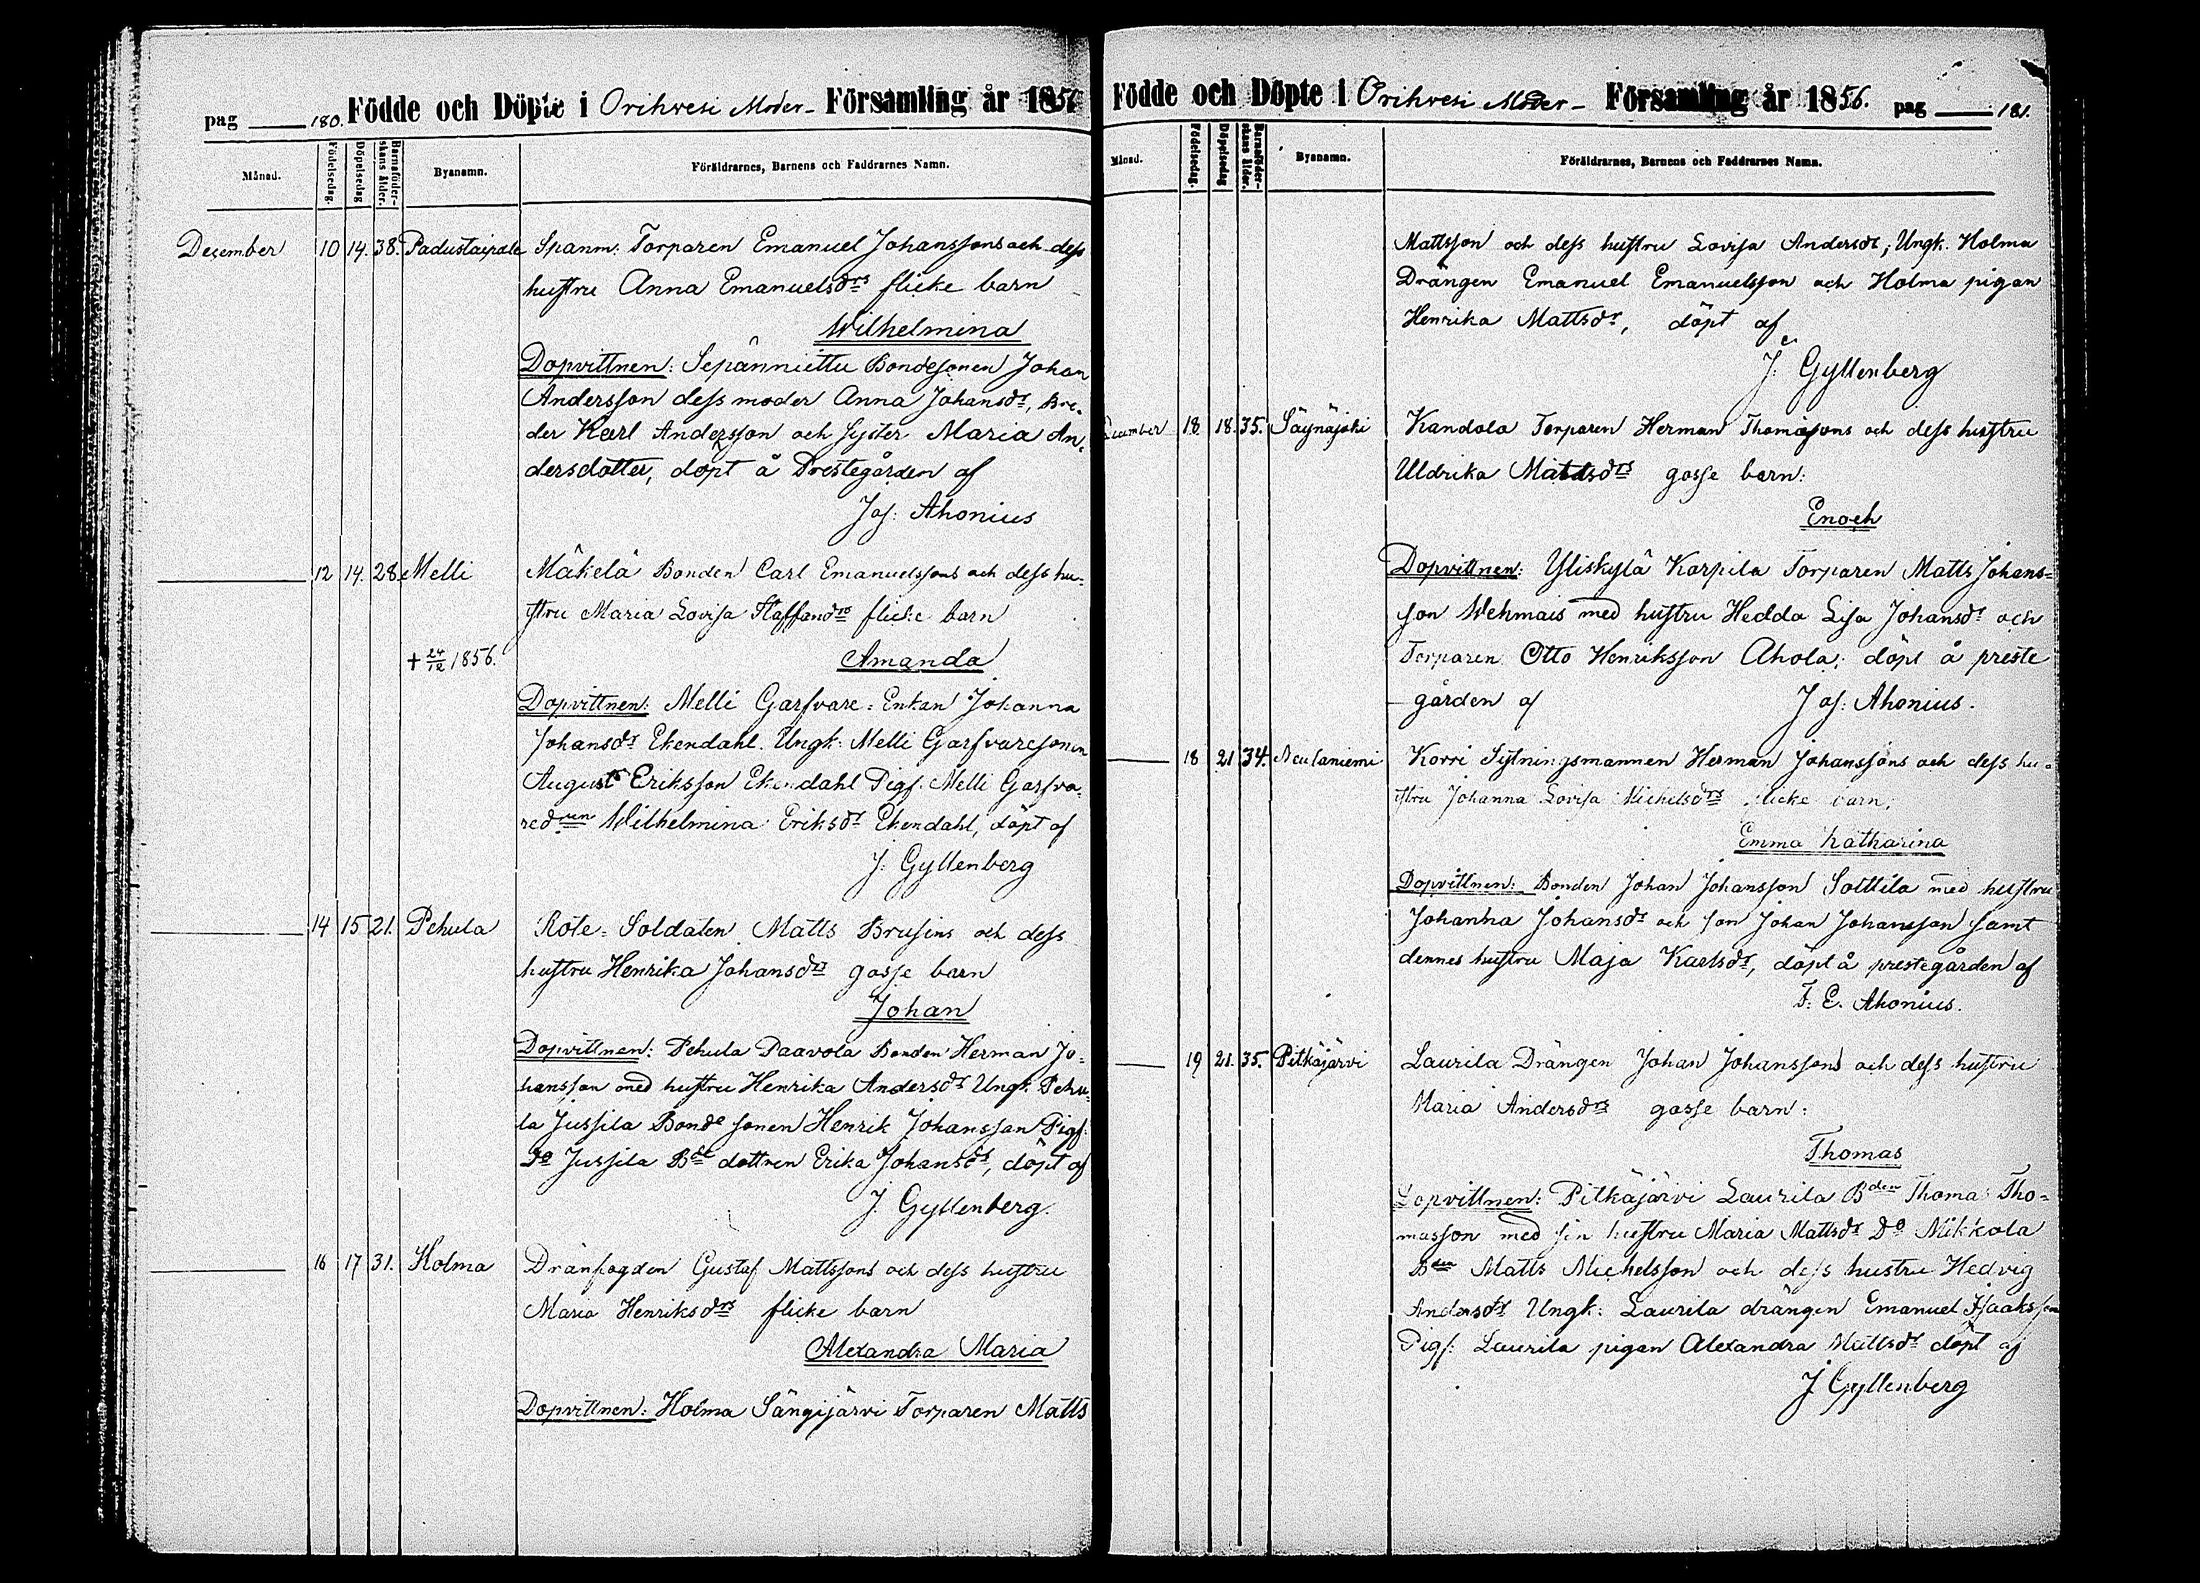 pag 180. Födde och Döpte i Orihvesi Moder- Församling år 1856
Månad. Födelsedag. Döpelsedag Barnaföderskans ålder. Byanamn. Föräldrarnes, Barnens och Faddrarnes Namn.
December 10 14. 38. Padustaipale Spanm: Torparen Emanuel Johanssons och dess
hustru Anna Emanuelsdrs flicke barn
Wilhelmina
Dopvittnen: Sepänniettu Bondesonen Johan
Andersson dess moder Anna Johansdr, Bro-
der Karl Andersson och syster Maria An-
dersdotter, döpt å Prestegården af
Jos: Ahonius
12 14. 28. Melli Mäkelä Bonden Carl Emanuelssons och dess hu-
stru Maria Lovisa Staffandrs flicke barn
+ 24/12 1856. Amanda
Dopvittnen: Melli Garfvare-Enkan Johanna
Johansdr Ekendahl. Ungk: Melli Garfvaresonen
August Eriksson Ekendahl Pigf. Melli Garfva-
redren Wilhelmina Eriksdr Ekendahl, döpt af
J. Gyllenberg
14 15 21. Pehula Rote-Soldaten Matts Brusins och dess
hustru Henrika Johansdrs gosse barn
Johan
Dopvittnen: Pehula Paavola Bonden Herman Jo-
hansson med hustru Henrika Andersdr Ungk. Pehu-
la Jussila Bonde sonen Henrik Johansson Pigf.
Do Jussila Bde dottren Erika Johansdr, döpt af
J. Gyllenberg.
16 17 31. Holma Dränfogden Gustaf Mattssons och dess hustru
Maria Henriksdrs flicke barn
Alexandra Maria
Dopvittnen: Holma Sängijärvi Torparen Matts
Födde och Döpte i Orihvesi Moder- Församling år 1856. pag 181.
Månad. Födelsedag. Döpelsedag Barnaföderskans ålder. Byanamn. Föräldrarnes, Barnens och Faddrarnes Namn.
Mattsson och dess hustru Lovisa Andersdr, Ungk. Holma
Drängen Emanuel Emanuelsson och Holma pigan
Henrika Mattsdr, döpt af
J. Gyllenberg
December 18. 18. 35. Säynäjoki Kandola Torparen Herman Thomassons och dess hustru
Uldrika Mattsdrs gosse barn:
Enoch
Dopvittnen: Yliskylä Karpila Torparen Matts Johans-
son Wehmais med hustru Hedda Lisa Johansdr och
Torparen Otto Henriksson Ahola; döpt å preste
gården af Jos: Ahonius.
18 21 34. Neulaniemi Korri Sytningsmannen Herman Johanssons och dess hu-
stru Johanna Lovisa Michelsdrs flicke barn;
Emma Katharina
Dopvittnen: Bonden Johan Johansson Solttila med hustru
Johanna Johansdr och son Johan Johansson samt
dennes hustru Maja Karlsdr, döpt å prestegården af
F. E. Ahonius.
19 21. 35. Pitkäjärvi Laurila Drängen Johan Johanssons och dess hustru
Maria Andersdrs gosse barn:
Thomas
Dopvittnen: Pitkäjärvi Laurila Bden Thomas Tho-
masson med sin hustru Maria Mattsdr Do Mikkola
Bden Matts Michelsson och dess hustru Hedvig
Andersdr Ungk: Laurila drängen Emanuel Isaksson
Pigf: Laurila pigan Alexandra Mattsdr döpt af
J Gyllenberg